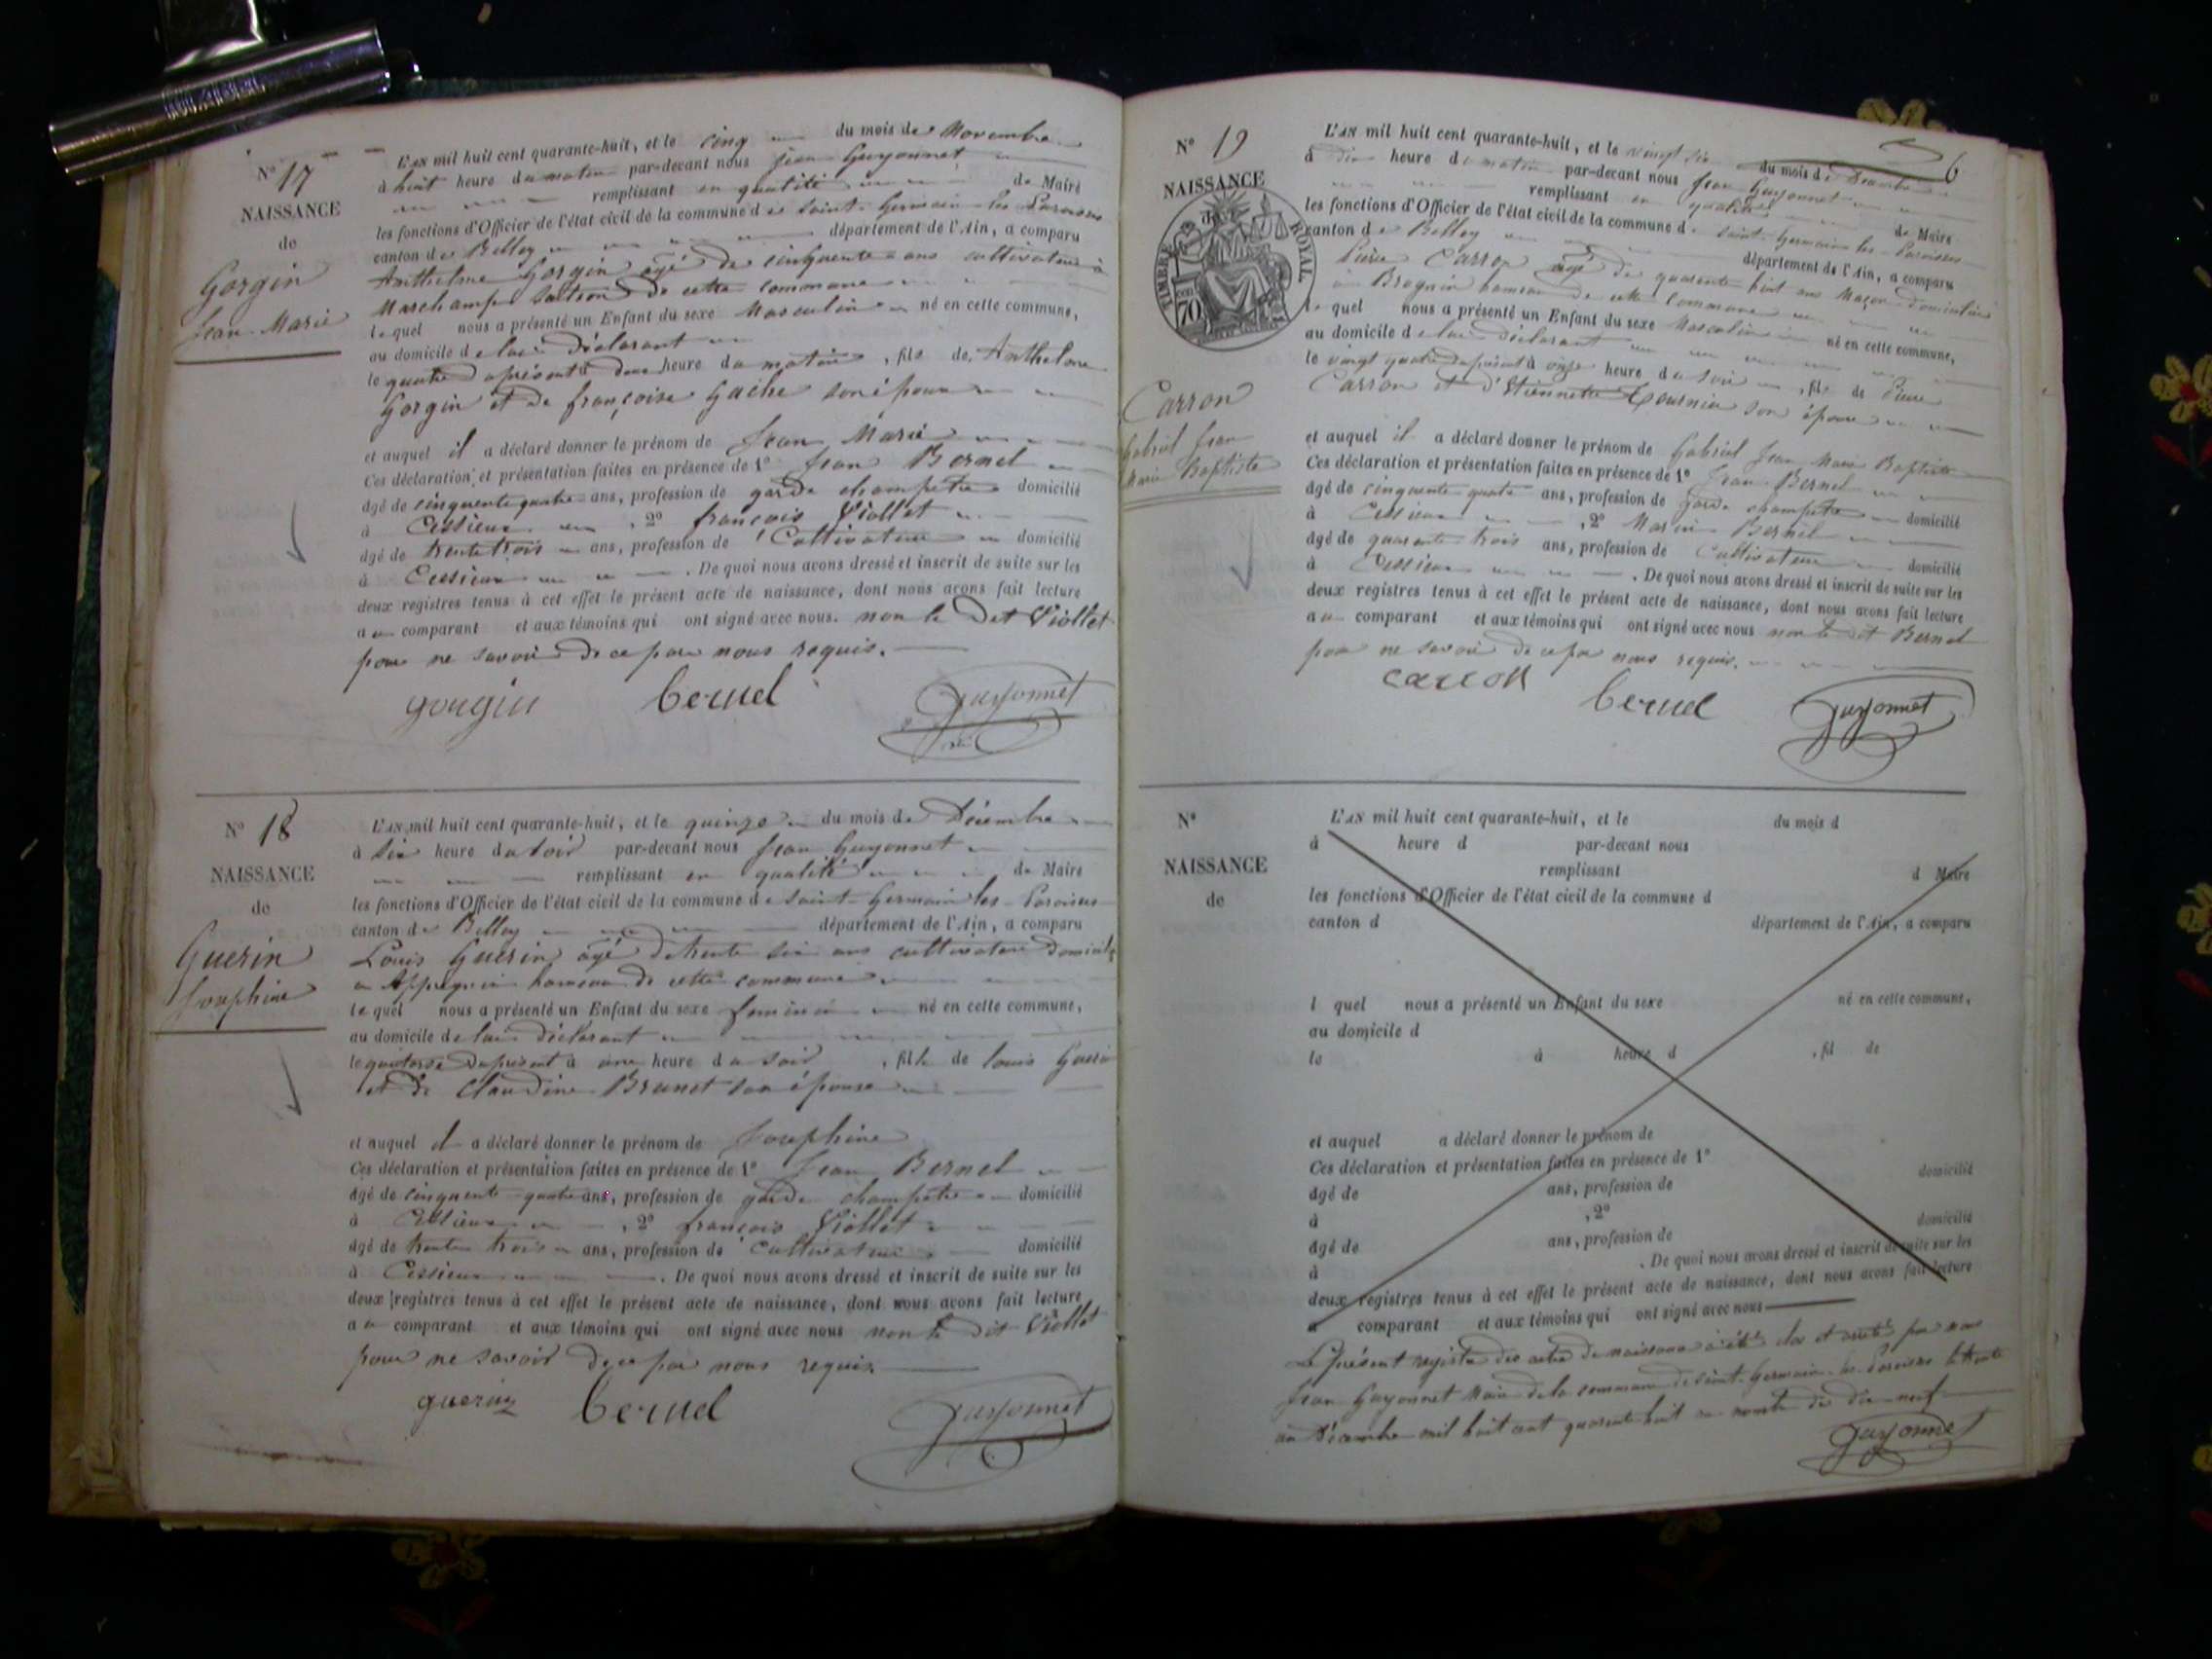 N° 17
NAISSANCE
de
Gorgin
Jean Marie
L'AN mil huit cent quarante-huit, et le cinq du mois de Novembre
à huit heure du matin par-devant nous Jean Guyonnet
remplissant en qualité de Maire
les fonctions d'Officier de l'état civil de la commune de saint-Germain-les-Paroisses
canton de Belley département de l'Ain, a comparu
Anthelme Gorgin âgé de cinquante ans cultivateur à
Marchamp de cette commune
lequel nous a présenté un Enfant du sexe Masculin né en cette commune,
au domicile de lui déclarant
le quatre du présent à heure du matin, fils de Anthelme
Gorgin et de françoise Gache son épouse
et auquel il a déclaré donner le prénom de Jean Marie
Ces déclaration et présentation faites en présence de 1° Jean Bernel
âgé de cinquente quatre ans, profession de garde champetre domicilié
à Cessieux, 2° françois Viollet
âgé de trente trois ans, profession de Cultivateur domicilié
à Cessieux. De quoi nous avons dressé et inscrit de suite sur les
deux registres tenus à cet effet le présent acte de naissance, dont nous avons fait lecture
au comparant et aux témoins qui ont signé avec nous. non le dit Viollet
pour ne savoir de ce par nous requis.
gorgin bernel Guyonnet
N° 18
NAISSANCE
de
Guerin
Josephine
L'AN mil huit cent quarante-huit, et le quinze du mois de Décembre
à six heure du soir par-devant nous Jean Guyonnet
remplissant en qualité de Maire
les fonctions d'Officier de l'état civil de la commune de saint-Germain les-Paroisses
canton de Belley département de l'Ain, a comparu
Louis Guerin âgé de trente six ans cultivateur domicilié
a Appregnin hameau de cette commune
lequel nous a présenté un Enfant du sexe feminin né en cette commune,
au domicile de lui déclarant
le quatorze du présent à une heure du soir, fille de louis Guerin
et de Claudine Brunet son épouse
et auquel il a déclaré donner le prénom de Josephine
Ces déclaration et présentation faites en présence de 1° Jean Bernel
âgé de cinquente-quatre ans, profession de garde champetre domicilié
à Cessieux, 2° françois Viollet
âgé de trente trois ans, profession de Cultivateur domicilié
à Cessieux. De quoi nous avons dressé et inscrit de suite sur les
deux registres tenus à cet effet le présent acte de naissance, dont nous avons fait lecture
au comparant et aux témoins qui ont signé avec nous non le dit Viollet
pour ne savoir de ce par nous requis.
guerin bernel Guyonnet
6
N° 19
NAISSANCE
TIMBRE ROYAL
70
Carron
Gabriel Jean
Marie Baptiste
L'AN mil huit cent quarante-huit, et le vingt six du mois de Décembre
à dix heure du matin par-devant nous Jean Guyonnet
remplissant en qualité de Maire
les fonctions d'Officier de l'état civil de la commune de saint-Germain-les-Paroisses
canton de Belley département de l'Ain, a comparu
Pierre Carron âgé de quarente huit ans Maçon domicilié
à Brognin hameau de cette commune
lequel nous a présenté un Enfant du sexe Masculin né en cette commune,
au domicile de lui déclarant
le vingt quatre du présent à onze heure du soir, fils de Pierre
Carron et d'Etiennette Tournier son épouse
et auquel il a déclaré donner le prénom de Gabriel Jean Marie Baptiste
Ces déclaration et présentation faites en présence de 1° Jean Bernel
âgé de cinquente-quatre ans, profession de garde champetre domicilié
à Cessieux, 2° Marin Bernel
âgé de quarente trois ans, profession de Cultivateur domicilié
à Cessieux. De quoi nous avons dressé et inscrit de suite sur les
deux registres tenus à cet effet le présent acte de naissance, dont nous avons fait lecture
au comparant et aux témoins qui ont signé avec nous non le dit Bernel
pour ne savoir de ce par nous requis.
carron bernel Guyonnet
N°
NAISSANCE
de
L'AN mil huit cent quarante-huit, et le du mois d
à heure d par-devant nous
remplissant d Maire
les fonctions d'Officier de l'état civil de la commune d
canton d département de l'Ain, a comparu
l quel nous a présenté un Enfant du sexe né en cette commune,
au domicile d
le à heure d , fil de
et auquel a déclaré donner le prénom de
Ces déclaration et présentation faites en présence de 1°
âgé de ans, profession de domicilié
à , 2°
âgé de ans, profession de domicilié
à . De quoi nous avons dressé et inscrit de suite sur les
deux registres tenus à cet effet le présent acte de naissance, dont nous avons fait lecture
a comparant et aux témoins qui ont signé avec nous
Le présent registre des actes de naissance a été clos et arrêté par nous
Jean Guyonnet Maire de la commune de saint-Germain-les-Paroisses le trente
un Décembre mil huit cent quarante huit au nombre de dix-neuf
Guyonnet